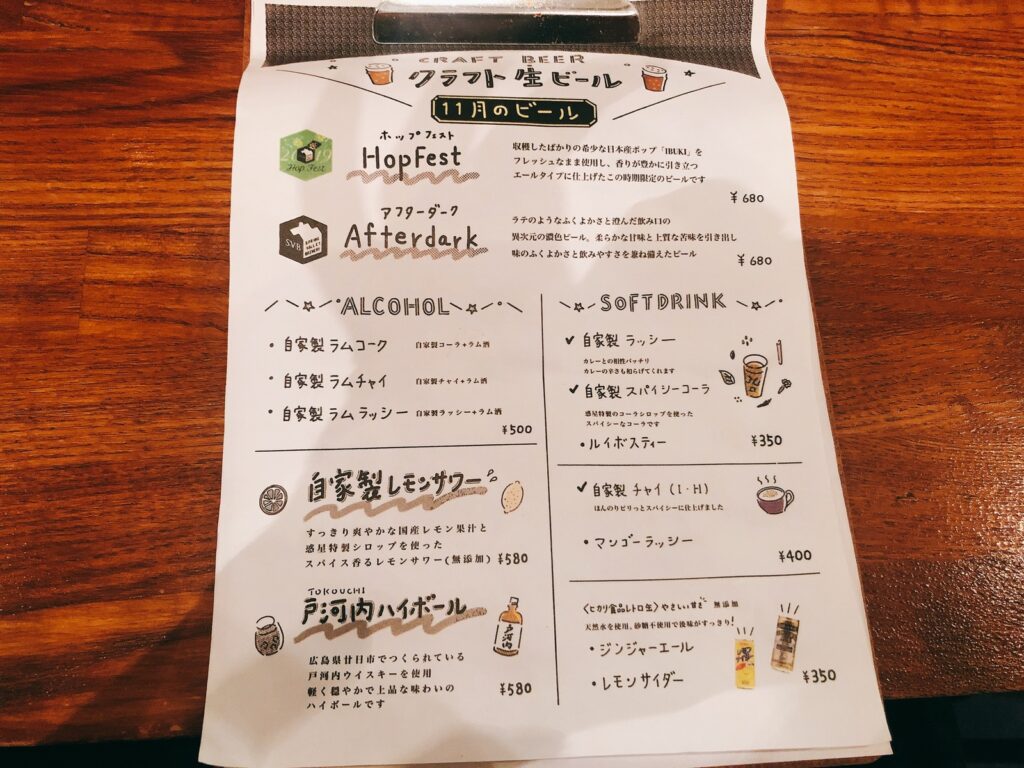 CRAFT BEER
クラフト生ビール
11月のビール
2019
Hop Fest
ホップフェスト
HopFest
収穫したばかりの希少な日本産ホップ「IBUKI」を
フレッシュなまま使用し、香りが豊かに引き立つ
エールタイプに仕上げたこの時期限定のビールです
¥680
SVB
SPRING
VALLEY
BREWERY
アフターダーク
Afterdark
ラテのようなふくよかさと澄んだ飲み口の
異次元の濃色ビール。柔らかな甘味と上質な苦味を引き出し
味のふくよかさと飲みやすさを兼ね備えたビール
¥680
ALCOHOL
・自家製 ラムコーク 自家製コーラ+ラム酒
・自家製 ラムチャイ 自家製チャイ+ラム酒
・自家製 ラム ラッシー 自家製ラッシー+ラム酒
¥500
自家製レモンサワー
すっきり爽やかな国産レモン果汁と
惑星特製シロップを使った
スパイス香るレモンサワー(無添加) ¥580
TOKOUCHI
戸河内ハイボール
戸河内
広島県廿日市でつくられている
戸河内ウイスキーを使用
軽く穏やかで上品な味わいの
ハイボールです
¥580
SOFTDRINK
✓自家製 ラッシー
カレーとの相性バッチリ
カレーの辛さも和らげてくれます
✓自家製 スパイシーコーラ
惑星特製のコーラシロップを使った
スパイシーなコーラです
・ルイボスティー ¥350
✓自家製 チャイ (I・H)
ほんのりピリっとスパイシーに仕上げました
・マンゴーラッシー
¥400
〈ヒカリ食品レトロ生〉やさしい甘さ 無添加
天然水を使用、砂糖不使用で後味がすっきり!
・ジンジャーエール
・レモンサイダー
¥350